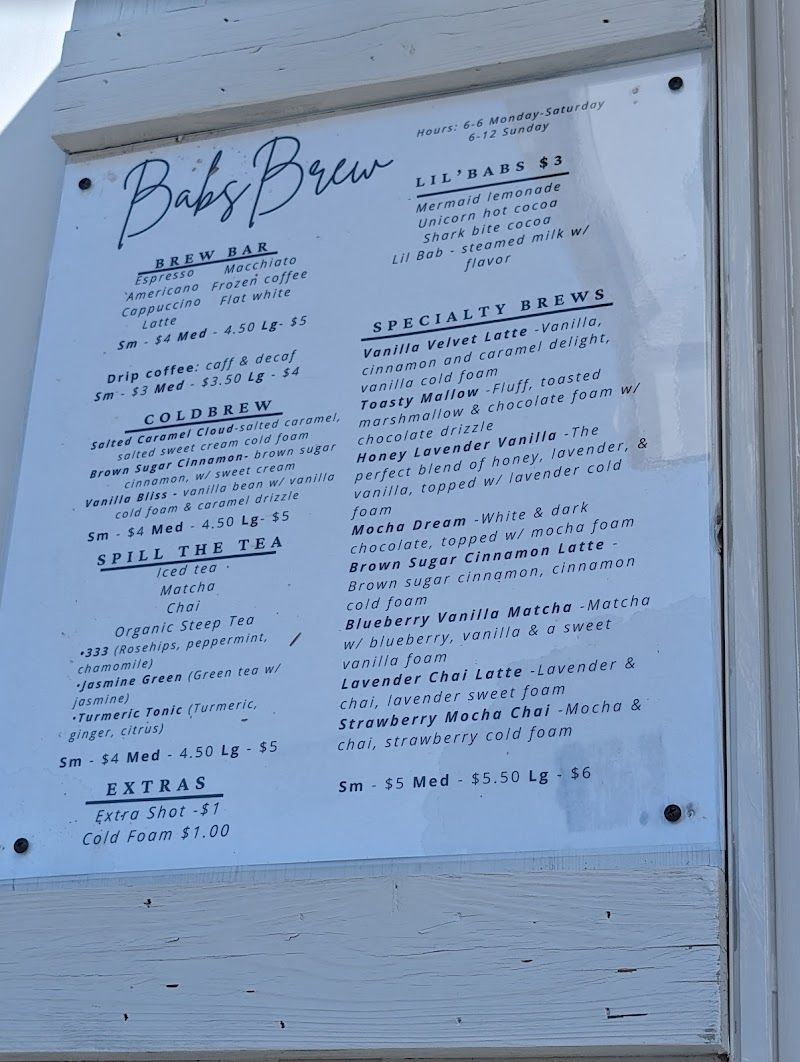 Babs Brew
Hours: 6-6 Monday-Saturday
6-12 Sunday
BREW BAR
Espresso Macchiato
Americano Frozen coffee
Cappuccino Flat white
Latte
Sm - $4 Med - 4.50 Lg- $5
Drip coffee: caff & decaf
Sm - $3 Med - $3.50 Lg - $4
COLDBREW
Salted Caramel Cloud-salted caramel,
salted sweet cream cold foam
Brown Sugar Cinnamon- brown sugar
cinnamon, w/ sweet cream
Vanilla Bliss - vanilla bean w/ vanilla
cold foam & caramel drizzle
Sm - $4 Med - 4.50 Lg- $5
SPILL THE TEA
Iced tea
Matcha
Chai
Organic Steep Tea
•333 (Rosehips, peppermint,
chamomile)
•Jasmine Green (Green tea w/
jasmine)
•Turmeric Tonic (Turmeric,
ginger, citrus)
Sm - $4 Med - 4.50 Lg - $5
EXTRAS
Extra Shot -$1
Cold Foam $1.00
LIL'BABS $3
Mermaid lemonade
Unicorn hot cocoa
Shark bite cocoa
Lil Bab - steamed milk w/
flavor
SPECIALTY BREWS
Vanilla Velvet Latte -Vanilla,
cinnamon and caramel delight,
vanilla cold foam
Toasty Mallow -Fluff, toasted
marshmallow & chocolate foam w/
chocolate drizzle
Honey Lavender Vanilla -The
perfect blend of honey, lavender, &
vanilla, topped w/ lavender cold
foam
Mocha Dream -White & dark
chocolate, topped w/ mocha foam
Brown Sugar Cinnamon Latte -
Brown sugar cinnamon, cinnamon
cold foam
Blueberry Vanilla Matcha -Matcha
w/ blueberry, vanilla & a sweet
vanilla foam
Lavender Chai Latte -Lavender &
chai, lavender sweet foam
Strawberry Mocha Chai -Mocha &
chai, strawberry cold foam
Sm - $5 Med - $5.50 Lg - $6